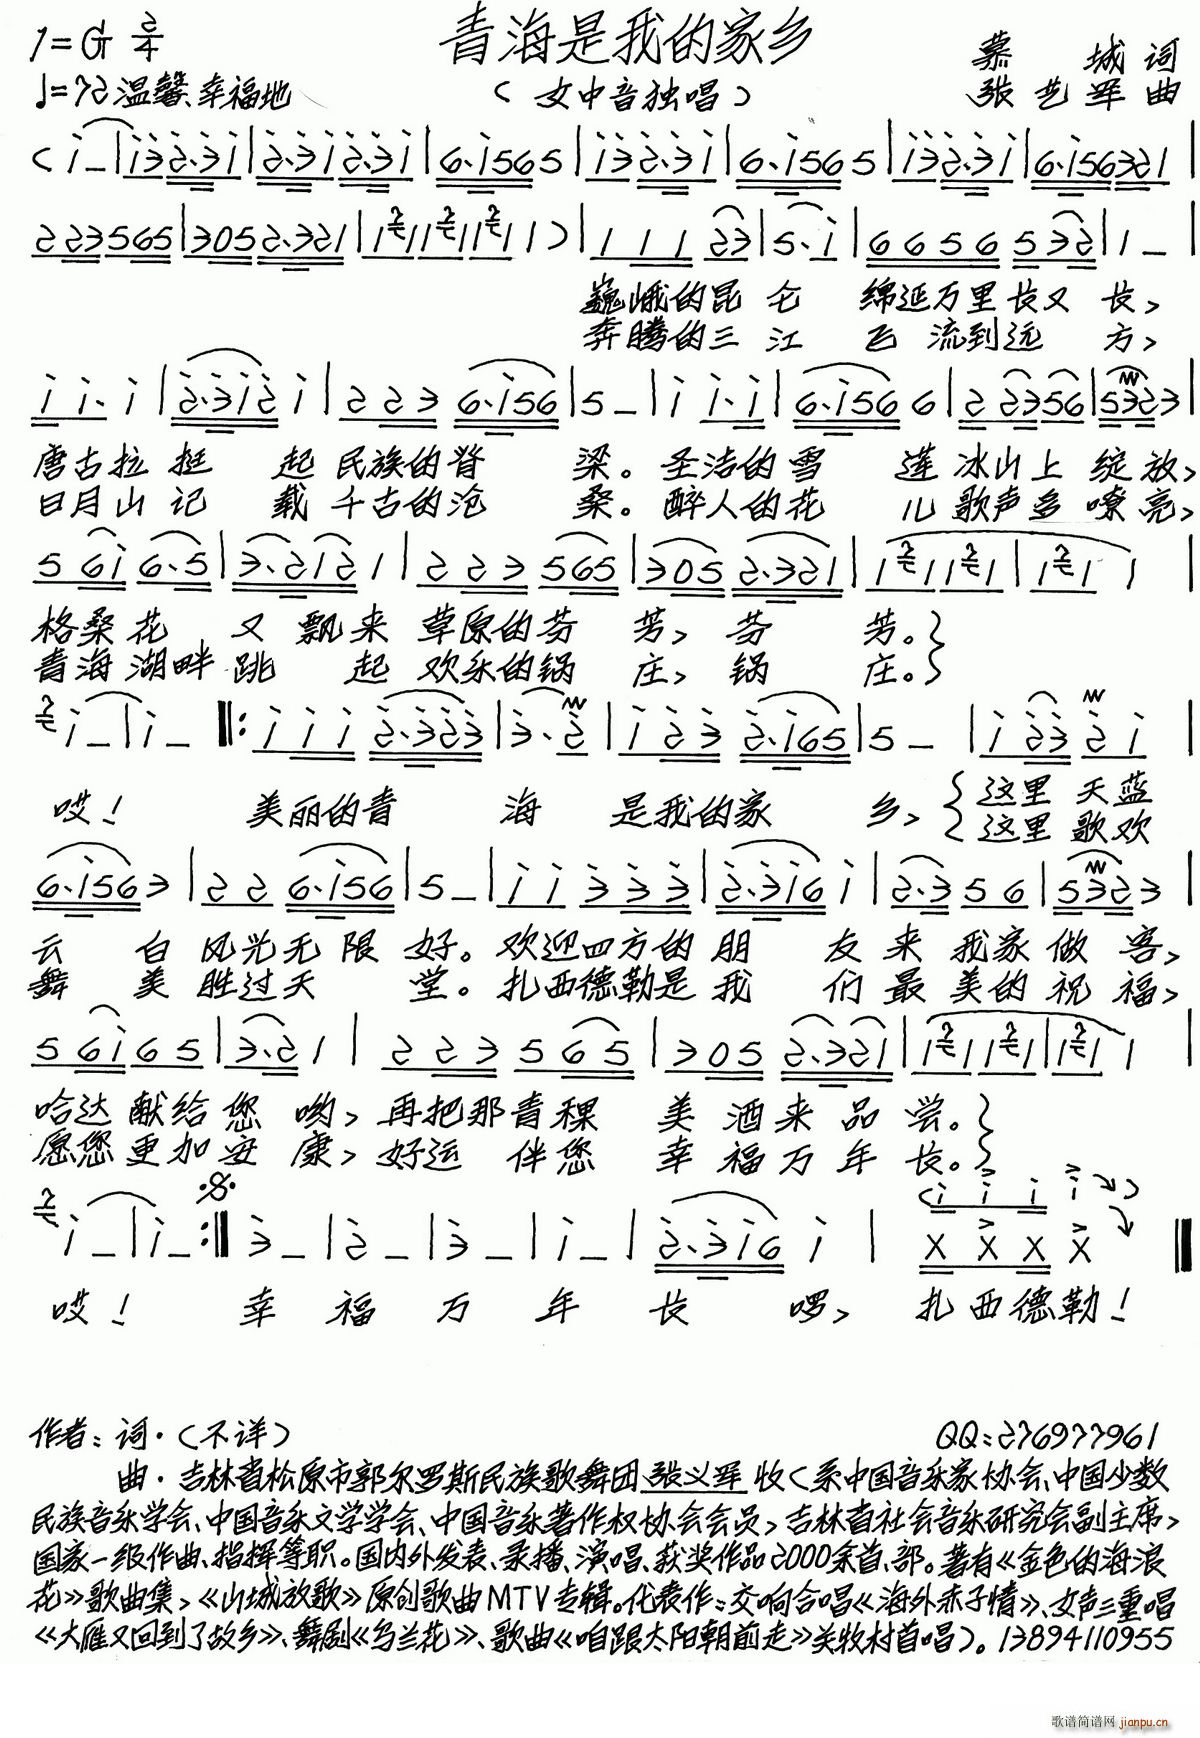 青海是我的家乡
1=G 2/4
慕城 词
♩=72 温馨、幸福地
（女中音独唱）
张艺军 曲
巍峨的昆仑 绵延万里长又长，
奔腾的三江 飞流到远方，
唐古拉挺起民族的脊梁。圣洁的雪莲冰山上绽放，
日月山记载千古的沧桑。醉人的花儿歌声多嘹亮，
格桑花又飘来草原的芬芳，芬芳。
青海湖畔跳起欢乐的锅庄，锅庄。
哎！ 美丽的青海是我的家乡，
这里天蓝
这里歌欢
云白风光无限好。欢迎四方的朋友来我家做客，
舞美胜过天堂。扎西德勒是我们最美的祝福，
哈达献给您哟，再把那青稞美酒来品尝。
愿您更加安康，好运伴您幸福万年长。
哎！ 幸福万年长啰，扎西德勒！
作者：词·（不详）
QQ：276977961
曲·吉林省松原市郭尔罗斯民族歌舞团张义军 收（系中国音乐家协会、中国少数
民族音乐学会、中国音乐文学学会、中国音乐著作权协会会员，吉林省社会音乐研究会副主席，
国家一级作曲、指挥等职。国内外发表、录播、演唱、获奖作品2000余首、部。著有《金色的海浪
花》歌曲集，《山城放歌》原创歌曲MTV专辑。代表作：交响合唱《海外赤子情》、女声三重唱
《大雁又回到了故乡》、舞剧《乌兰花》、歌曲《咱跟太阳朝前走》关牧村首唱）。13894110955
歌谱简谱网 jianpu.cn